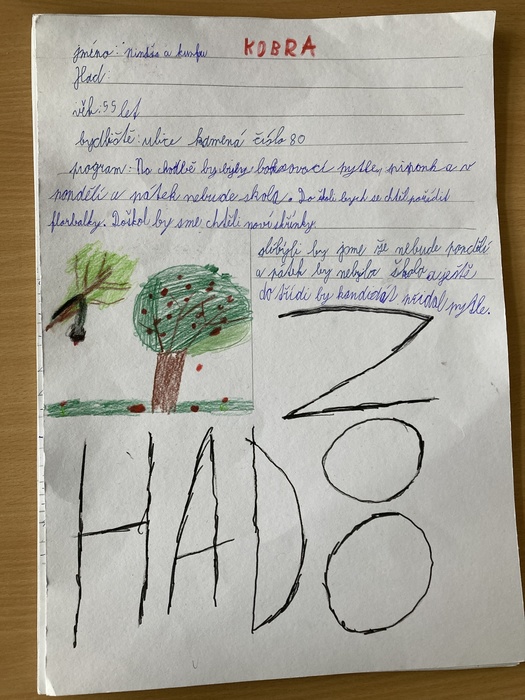 KOBRA
jméno: a kunfu
Had:
věk: 55 let
bydliště: ulice kamená číslo 80
program: Na chodbě by byly boksovací pytle, pinponk a v
pondělí a pátek nebude škola. Do školi bych se chtěl pořídit
florbalky. Do škol by sme chtěli nové skříňky.
slíbyli by jsme že nebude pondělí
a pátek by nebyla škola a ještě
do třídi by kandidát pytle.
ZOO
HAD